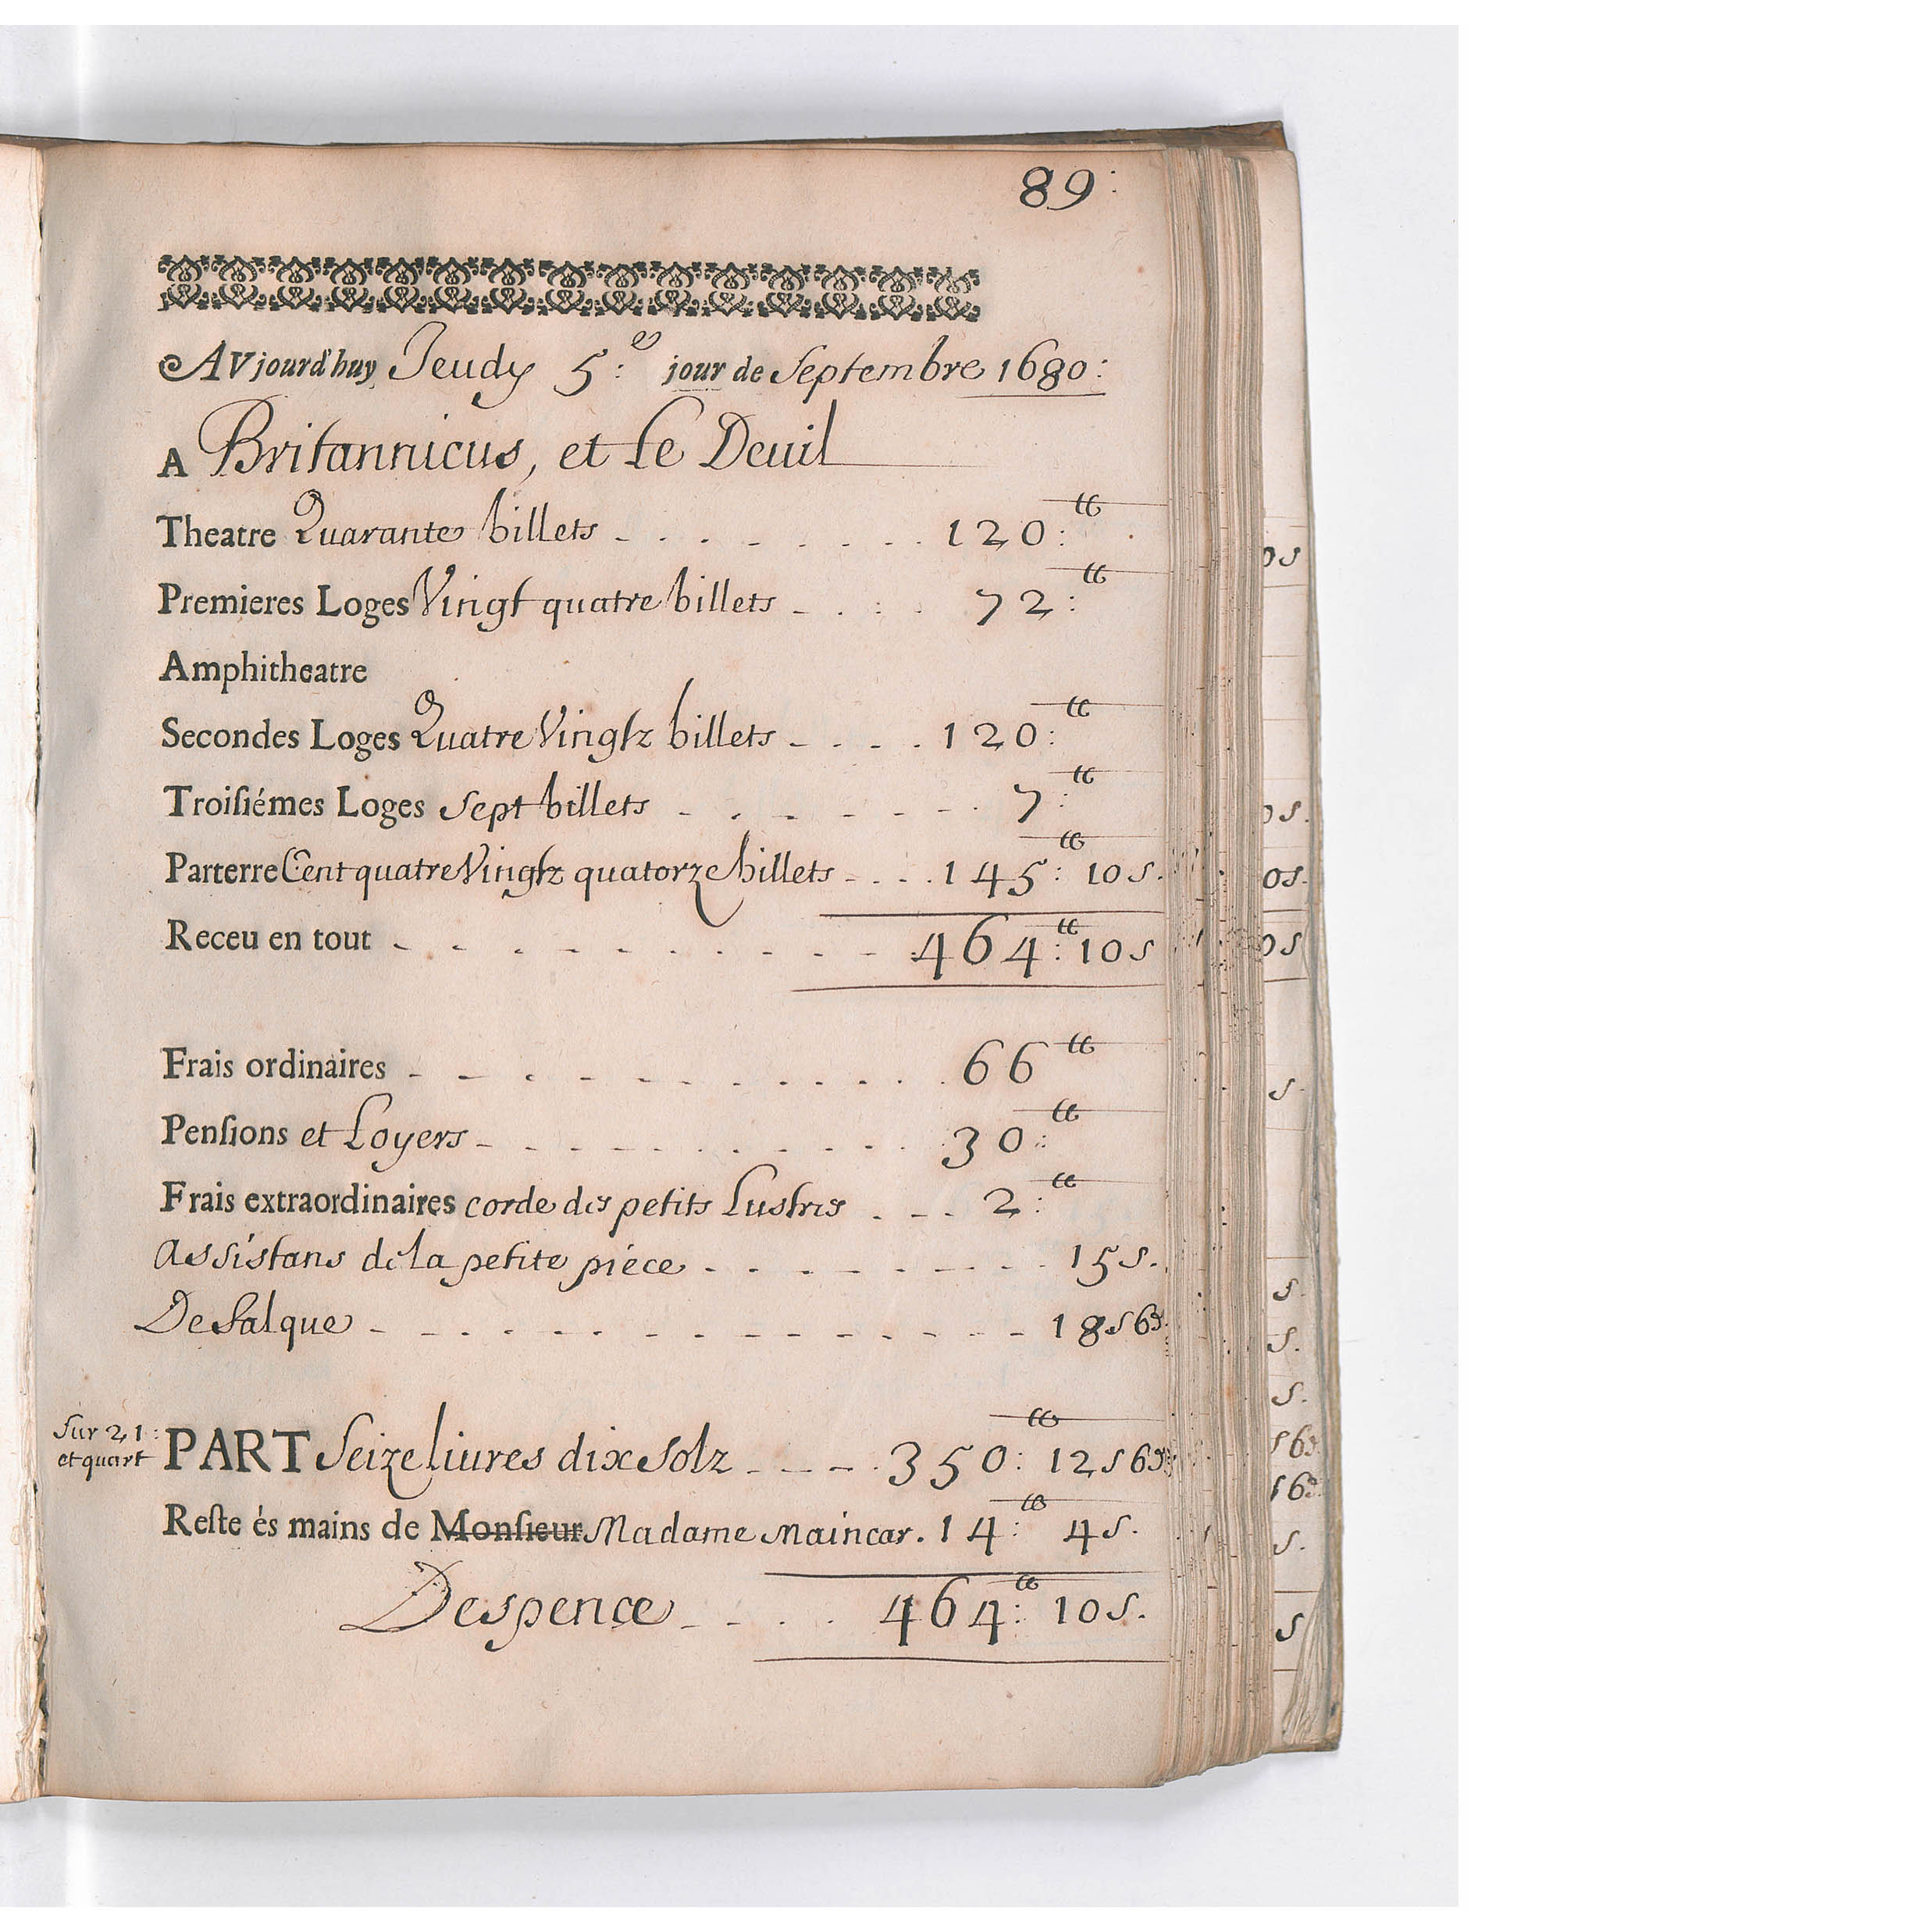 89:
AVjourd'huy, Jeudy 5:e jour de Septembre 1680:
A Britannicus, et Le Deuil
Theatre Quarante billets - . . . - . - . . 120:tt
Premieres Loges Vingt quatre billets - . : . 72:tt
Amphitheatre
Secondes Loges Quatre Vingtz billets - . - . 120:tt
Troisiémes Loges Sept billets - . - . - - . 7:tt
Parterre Cent quatre Vingtz quatorze billets - . . . 145:tt 10s.
Receu en tout - . - . - . . . . - - 464:tt 10s
Frais ordinaires - - . . - . . . . . . 66tt
Pensions et Loyers - . - . - . - . . - . 30:tt
Frais extraordinaires corde des petits Lustres . - - . 2:tt
Assistans de la petite piéce . - . . - . - - . 15s.
De Salque - . - . - . - . - . - . - - 18s6d.
Sur 21:
et quart
PART Seize liures dix Solz - . - - . 350:tt 12s6d
Reste és mains de Monsieur Madame Maincar . 14:tt 4s.
Despence - - . . . 464:tt 10s.
os
os.
os.
os
s.
s.
s.
s.
s6d.
16d.
s.
s